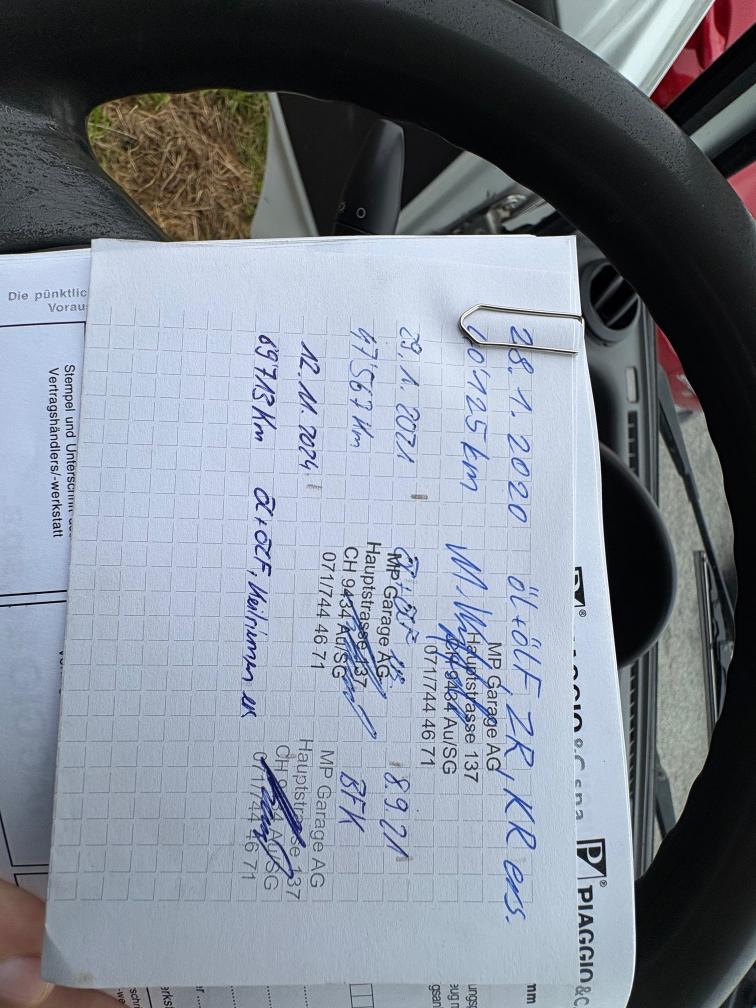 28.1.2020 ÖL+ÖLF ZR, KR ers.
60'125 km
MP Garage AG
Hauptstrasse 137
CH 9434 Au/SG
071/744 46 71
29.1.2021 ÖL+ÖLF ers. 8.9.21
47'567 Km BFK
MP Garage AG
Hauptstrasse 137
CH 9434 Au/SG
071/744 46 71
12.11.2024
69713 Km ÖL+ÖLF, Keilriemen ers
MP Garage AG
Hauptstrasse 137
CH 9434 Au/SG
071/744 46 71
PIAGGIO & C. s.p.a.
PIAGGIO & C
Die pünktlic
Vorau
Stempel und Unterschrift des
Vertragshändlers/-werkstatt